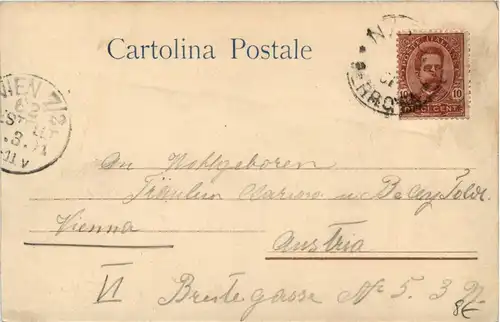 Cartolina Postale
POSTE ITALIANE
10 CENT. 10
WIEN 7/2
An Wohlgeboren
Fräulein Clarisse u Bacey
Vienna
Austria
VI Breitegasse No 5. 3
8€